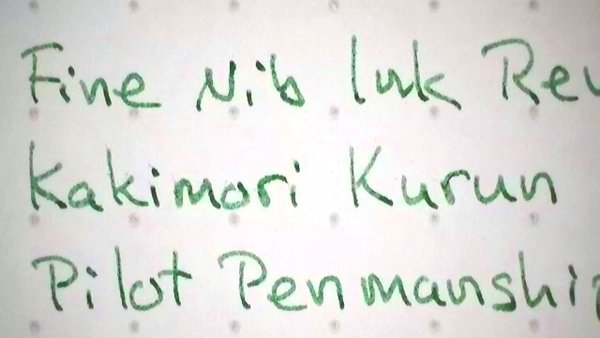 Fine Nib Ink Rev
Kakimori Kurun
Pilot Penmanship